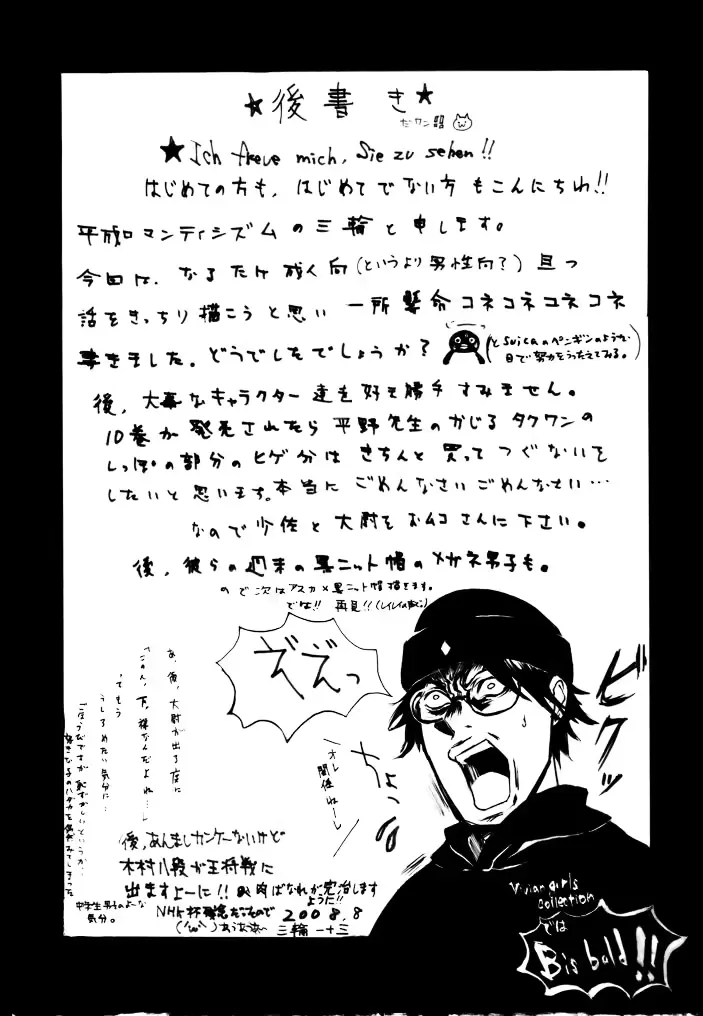 ★後書き★
だワン!!
★Ich freue mich, Sie zu sehen!!
はじめての方も、はじめてでない方もこんにちわ!!
平成ロマンティシズムの三輪と申します。
今回は、なるたけ成人向(というより男性向?)且つ
話をきっちり描こうと思い一所懸命コネコネコネコネ
書きました。どうでしたでしょうか?
(とSuicaのペンギンのような
目で努力をうったえてみる。)
後、大事なキャラクター達を好き勝手すみません。
10巻が発売されたら平野先生のかじるタクワンの
しっぽの部分のヒゲ分はきちんと買ってつぐないを
したいと思います。本当にごめんなさいごめんなさい…
なので少佐と大尉をおムコさんに下さい。
後、彼らの週末の黒ニット帽のメガネ男子も。
ので次はアスカ×黒ニット帽描きます。
では!! 再見!!
あ、後、大尉が出る度に
「ごめん、下、裸なんだよね…」
ってもう
うしろめたい気分に…
中学生男子のよーな
気分。
ぞぞぇっ
ビクッ
ちょっ
オレ
関係ねーし
後、あんましカンケーないけど
木村八段が王将戦に
出ますよーに!! 肉ばなれが完治します
ように!!
NHK杯残念だったので 2008.8
三輪一十三
Vivian girls
collection
では
Bis bald!!